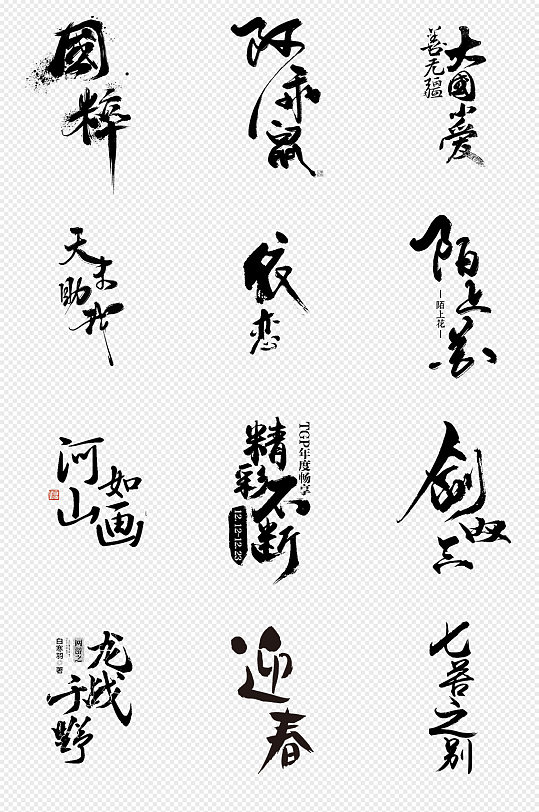 國粹
阿
鼠
大國小愛
善无疆
天
助我
依恋
陌上花
—陌上花—
河山
如画
TGP年度畅享
精彩不断
12.12-12.23
剑
三
龙战
于野
网游之
白寒羽 著
迎春
七
之别